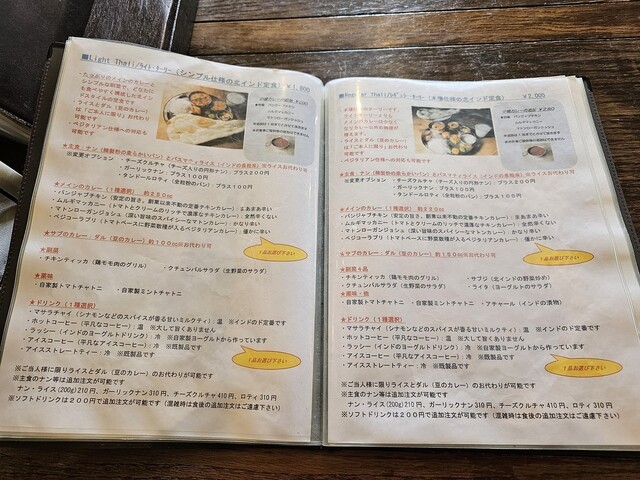 ■Light Thali/ライト・ターリー (シンプル仕様の北インド定食) ￥1,800
★主食：ナン (精製粉の柔らかいパン) とバスマティライス (インドの高級米) ※ライスお代わり可
※変更オプション ・チーズクルチャ (チーズ入りの円形ナン) プラス200円
・ガーリックナン プラス100円
・タンドールロティ (全粒粉のパン) プラス100円
★メインのカレー (1種選択) 約250cc
・パンジャブチキン (安定の旨さ、創業以来不動の定番チキンカレー)：まあまあ辛い
・ムルギマッカーニ (トマトとクリームのリッチで濃厚なチキンカレー)：全然辛くない
・マトンローガンジョシュ (深い旨味のスパイシーなマトンカレー)：かなり辛い
・ベジコーラプリ (トマトベースに野菜数種が入るベジタリアンカレー)：僅かに辛い
★サブのカレー：ダル (豆のカレー) 約100cc※お代わり可
★副菜
・チキンティッカ (鶏モモ肉のグリル) ・クチュンバルサラダ (生野菜のサラダ)
★薬味
・自家製トマトチャトニ ・自家製ミントチャトニ
★ドリンク (1種選択)
・マサラチャイ (シナモンなどのスパイスが香る甘いミルクティ)：温 ※インドのド定番です
・ホットコーヒー (平凡なコーヒー)：温 ※大して旨くありません
・ラッシー (インドのヨーグルトドリンク)：冷 ※自家製ヨーグルトから作っています
・アイスコーヒー (平凡なアイスコーヒー)：冷 ※既製品です
・アイスストレートティー：冷 ※既製品です
1品お選び下さい
※ご当人様に限りライスとダル (豆のカレー) のお代わりが可能です
※主食のナン等は追加注文が可能です
ナン・ライス(200g)210円、ガーリックナン310円、チーズクルチャ410円、ロティ310円
※ソフトドリンクは200円で追加注文が可能です (混雑時は食後の追加注文はご遠慮下さい)
￥2,000
★主食：ナン (精製粉の柔らかいパン) とバスマティライス (インドの高級米) ※ライスお代わり可
※変更オプション ・チーズクルチャ (チーズ入りの円形ナン) プラス200円
・ガーリックナン プラス100円
・タンドールロティ (全粒粉のパン) プラス100円
★メインのカレー (1種選択) 約250cc
・パンジャブチキン (安定の旨さ、創業以来不動の定番チキンカレー)：まあまあ辛い
・ムルギマッカーニ (トマトとクリームのリッチで濃厚なチキンカレー)：全然辛くない
・マトンローガンジョシュ (深い旨味のスパイシーなマトンカレー)：かなり辛い
・ベジコーラプリ (トマトベースに野菜数種が入るベジタリアンカレー)：僅かに辛い
1品お選び下さい
★副菜4品
・チキンティッカ (鶏モモ肉のグリル) ・サブジ (北インドの野菜炒め)
・クチュンバルサラダ (生野菜のサラダ) ・ライタ (ヨーグルトのサラダ)
★薬味・他
・自家製トマトチャトニ ・自家製ミントチャトニ ・アチャール (インドの漬物)
★ドリンク (1種選択)
・マサラチャイ (シナモンなどのスパイスが香る甘いミルクティ)：温 ※インドのド定番です
・ホットコーヒー (平凡なコーヒー)：温 ※大して旨くありません
・ラッシー (インドのヨーグルトドリンク)：冷 ※自家製ヨーグルトから作っています
・アイスコーヒー (平凡なアイスコーヒー)：冷 ※既製品です
・アイスストレートティー：冷 ※既製品です
1品お選び下さい
※ご当人様に限りライスとダル (豆のカレー) のお代わりが可能です
※主食のナン等は追加注文が可能です
ナン・ライス(200g)210円、ガーリックナン310円、チーズクルチャ410円、ロティ310円
※ソフトドリンクは200円で追加注文が可能です (混雑時は食後の追加注文はご遠慮下さい)